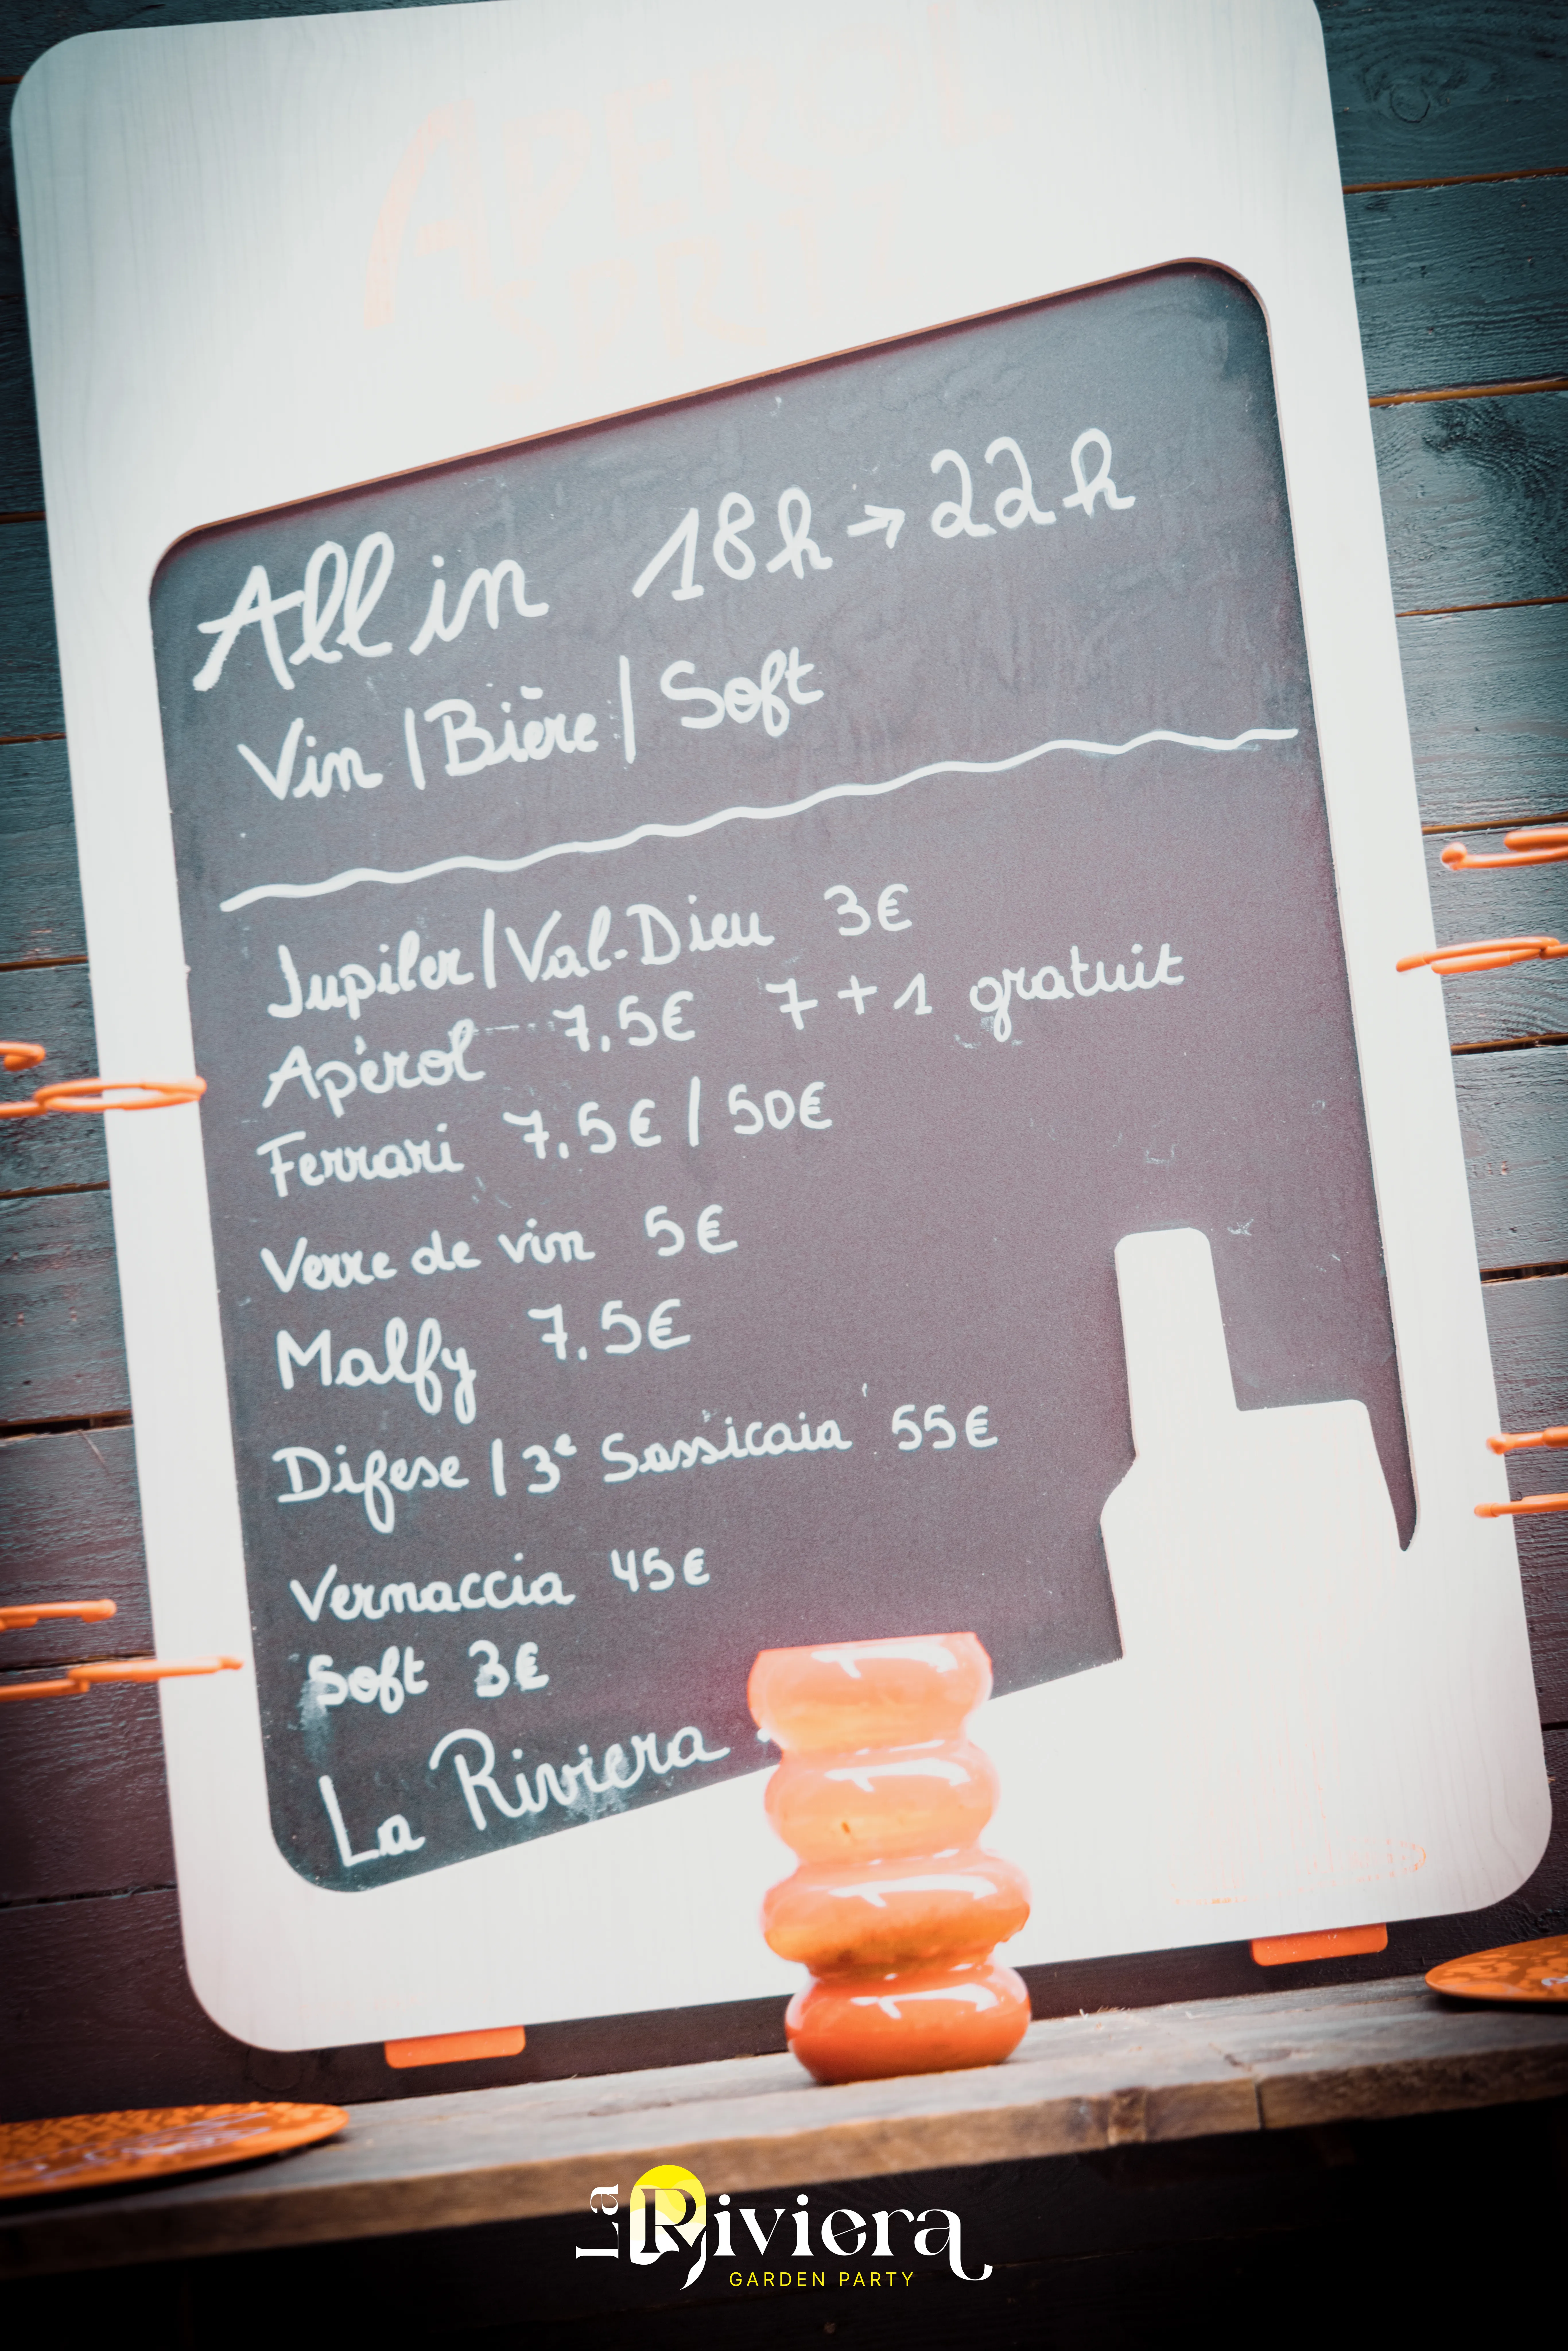 APEROL
All in 18h → 22h
Vin | Bière | Soft
Jupiler | Val-Dieu 3€
Apérol 7.5€ 7 + 1 gratuit
Ferrari 7.5€ / 50€
Verre de vin 5€
Malfy 7.5€
Difese | 3e Sassicaia 55€
Vernaccia 45€
Soft 3€
La Riviera
La Riviera
GARDEN PARTY